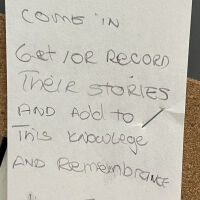 COME IN
Get/OR RECORD
THEIR STORIES
AND Add to
THIS KNOWLEGE
AND REMEMBRANCE